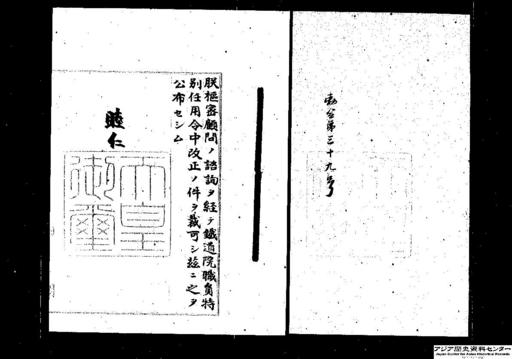 勅令第三十九号
朕枢密顧問ノ諮詢ヲ経テ鐵道院職員特
別任用令中改正ノ件ヲ裁可シ茲ニ之ヲ
公布セシム
睦仁
天皇
御璽
アジア歴史資料センター
Japan Center for Asian Historical Records